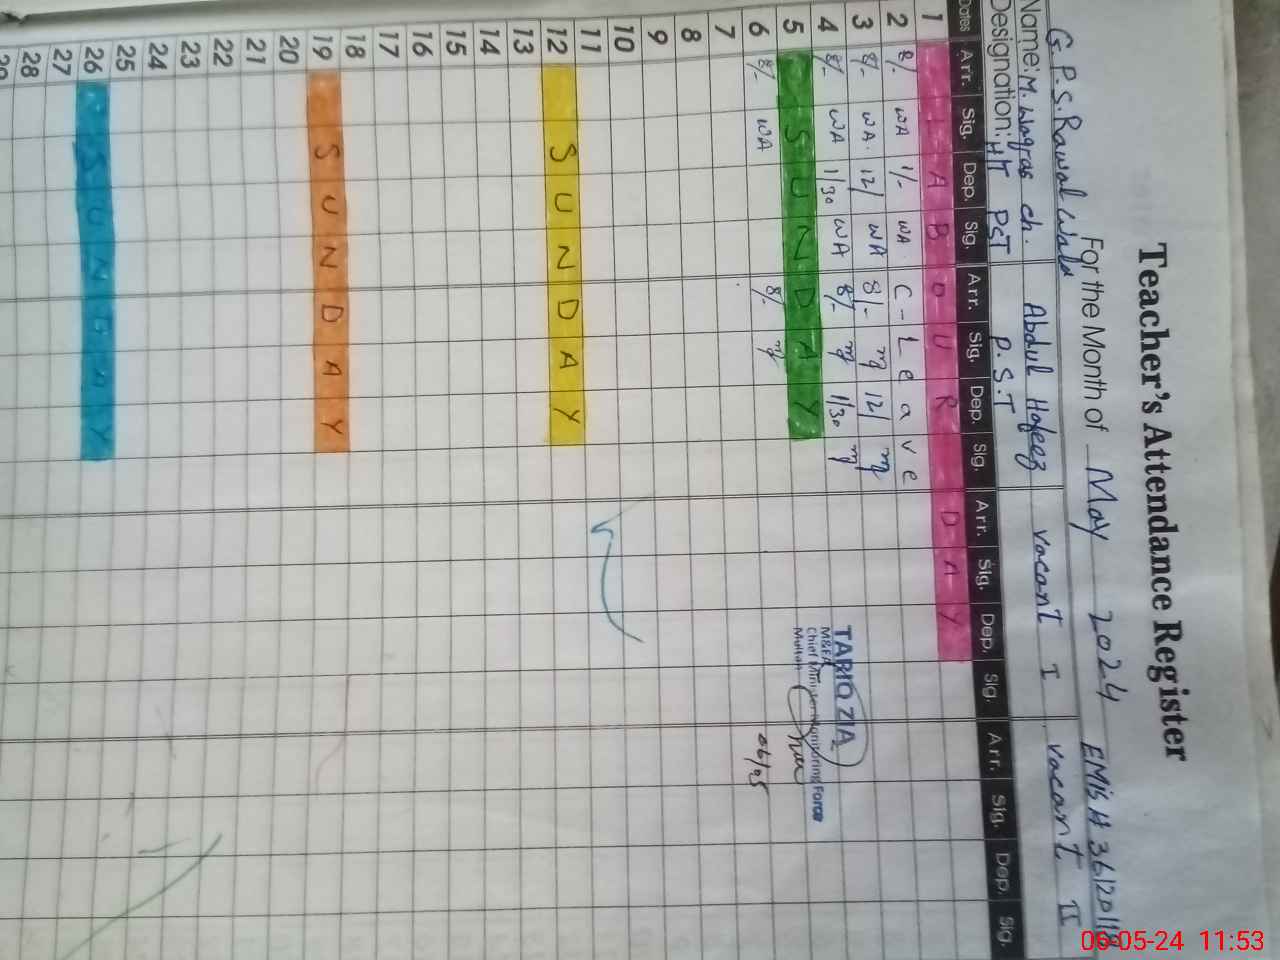 Teacher's Attendance Register
For the Month of May 2024 EMis # 36120118
G.P.S. Rawal Wala
Name: M. Waqras ch. Abdul Hafeez vacant I vacant II
Designation: HT PST P.S.T
Dates Arr. Sig. Dep. Sig. Arr. Sig. Dep. Sig. Arr. Sig. Dep. Sig. Arr. Sig. Dep. Sig.
1 LABOUR DAY
2 8/- WA 1/- WA C-Leave
3 8/- WA 12/ WA 8/- 12/
4 8/- WA 1/30 WA 8/- 1/30
5 SUNDAY
6 8/- WA 8/-
TARIQ ZIA
M&EA
Chief Minister Monitoring Force
Multan
06/05
7
8
9
10
11
12 SUNDAY
13
14
15
16
17
18
19 SUNDAY
20
21
22
23
24
25
26 SUNDAY
27
28
29
06-05-24 11:53